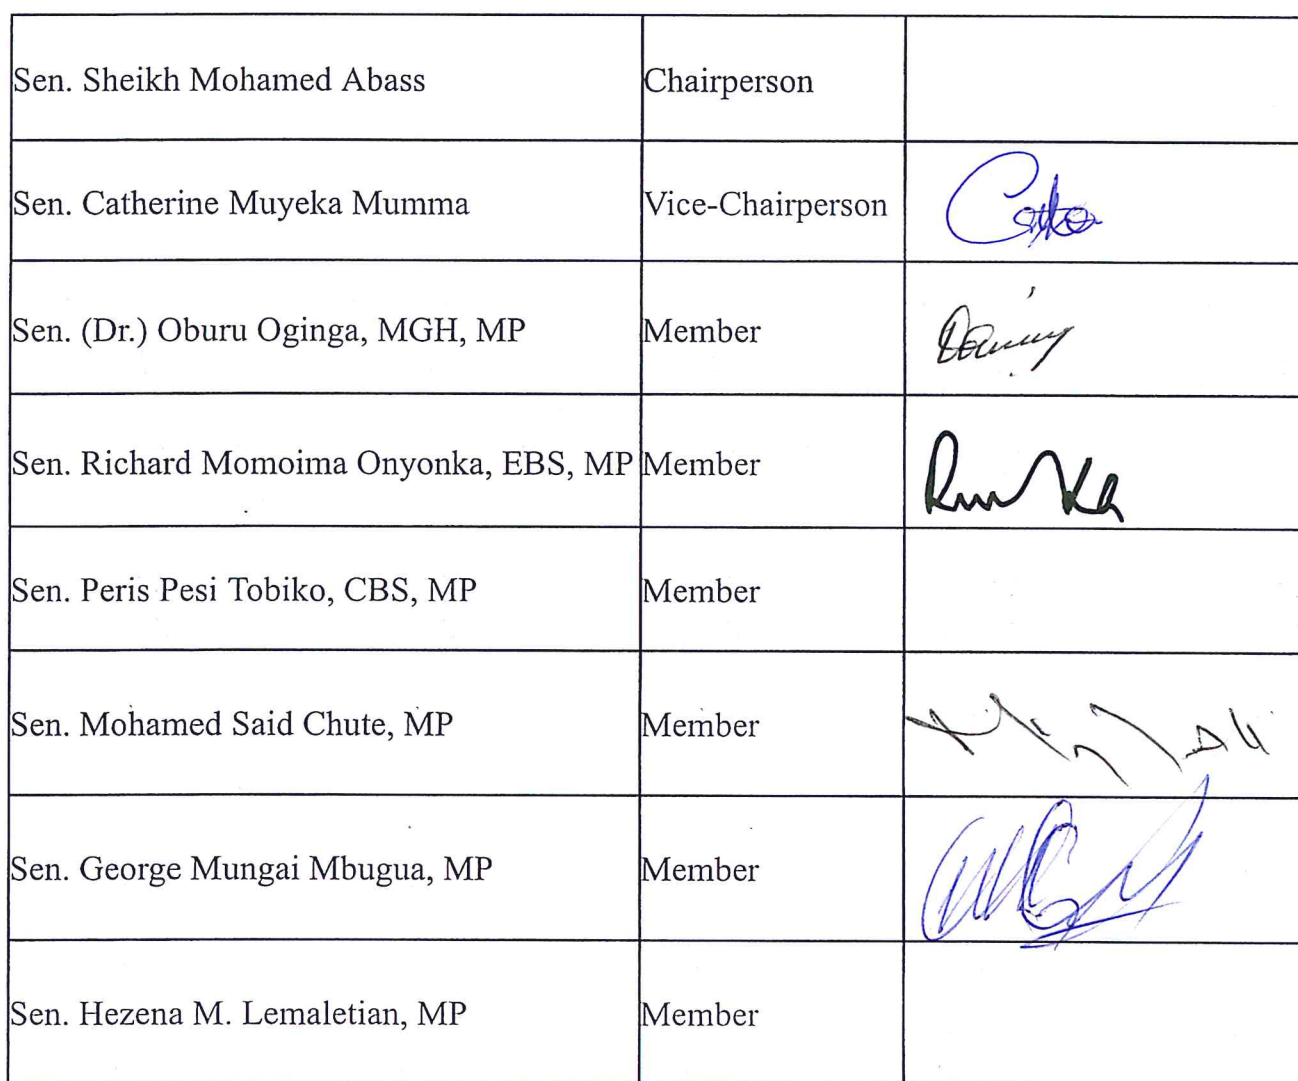 Sen. Sheikh Mohamed Abass Chairperson
Sen. Catherine Muyeka Mumma Vice-Chairperson
Sen. (Dr.) Oburu Oginga, MGH, MP Member
Sen. Richard Momoima Onyonka, EBS, MP Member
Sen. Peris Pesi Tobiko, CBS, MP Member
Sen. Mohamed Said Chute, MP Member
Sen. George Mungai Mbugua, MP Member
Sen. Hezena M. Lemaletian, MP Member